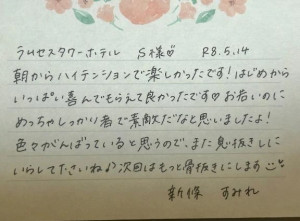 ラムセスタワーホテル S様♡ R8.5.14
朝からハイテンションで楽しかったです!はじめから
いっぱい喜んでもらえて良かったです♡お若いのに
めっちゃしっかり者で素敵だなと思いましたよ!
色々がんばっていると思うので、また息抜きしに
いらしてくださいね♪次回はもっと骨抜きにします
新條 すみれ